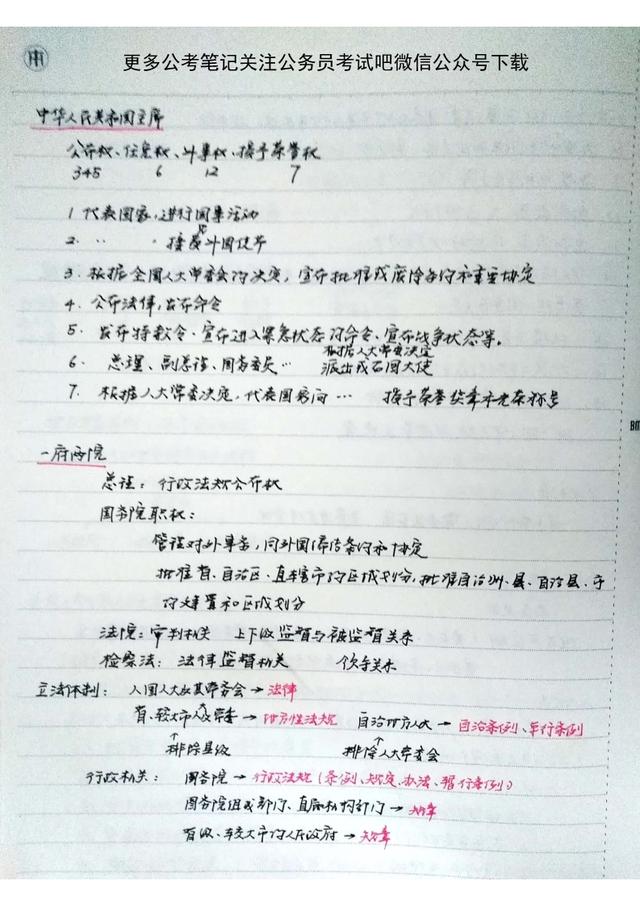 更多公考笔记关注公务员考试吧微信公众号下载
中华人民共和国主席
公布权、任免权、外事权、授予荣誉权
345 6 12 7
1 代表国家,进行国事活动
2. 〃 〃 接受外国使节
3. 根据全国人大常委会的决定,宣布批准或废除条约和重要协定
4. 公布法律,发布命令
5. 发布特赦令、宣布进入紧急状态的命令、宣布战争状态等。
根据人大常委决定
6. 总理、副总理、国务委员… 派出或召回大使
7. 根据人大常委决定,代表国家向… 授予荣誉奖章和光荣称号
一府两院
总理:行政法规公布权
国务院职权:
管理对外事务,同外国缔结条约和协定
批准省、自治区、直辖市的区域划分,批准自治州、县、自治县、市
的建置和区域划分
法院:审判机关 上下级监督与被监督关系
检察法:法律监督机关 领导关系
立法体制: 全国人大及其常委会→法律
省、较大市人大及常委→地方性法规 自治地方人大→自治条例、单行条例
排除县级 排除人大常委会
行政机关: 国务院→行政法规(条例、规定、办法、暂行条例)
国务院组成部门、直属机构部门→规章
省级、较大市的人民政府→规章